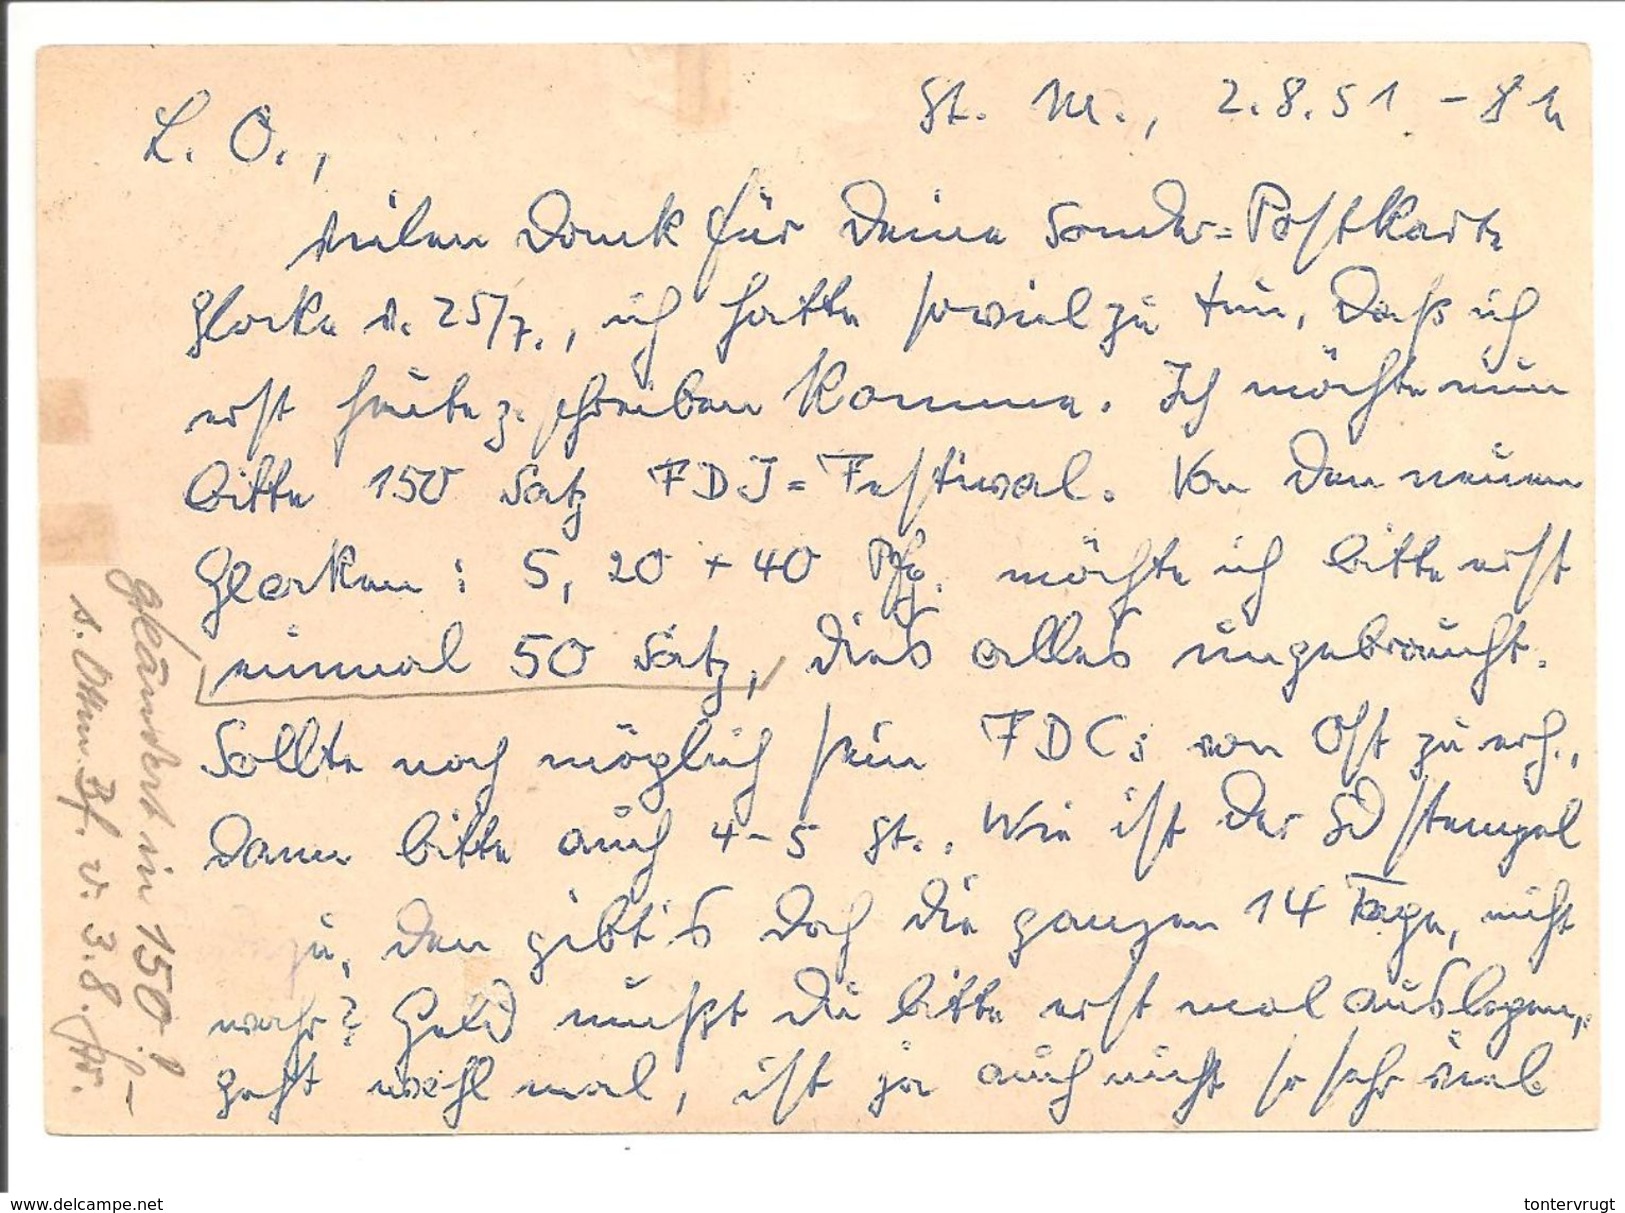 St. M., 2.8.51. - 8 h
L. O.,
vielen Dank für Deine Sonder=Postkarte
Glocke v. 25/7., ich hatte soviel zu tun, daß ich
erst heute z. schreiben komme. Ich möchte nun
bitte 150 Satz FDJ=Festival. Von den neuen
Glocken: 5, 20 + 40 Pfg. möchte ich bitte erst
einmal 50 Satz, dies alles ungebraucht.
Sollte noch möglich sein FDCs von Ost zu erh.,
dann bitte auch 4-5 St.. Wie ist der SDstempel
zu, den gibt's doch die ganzen 14 Tage, nicht
wahr? Geld mußt Du bitte erst mal auslegen,
geht wohl mal, ist ja auch nicht so sehr viel
geändert in 150!
s. Bf. v. 3.8.
www.delcampe.net
tontervrugt